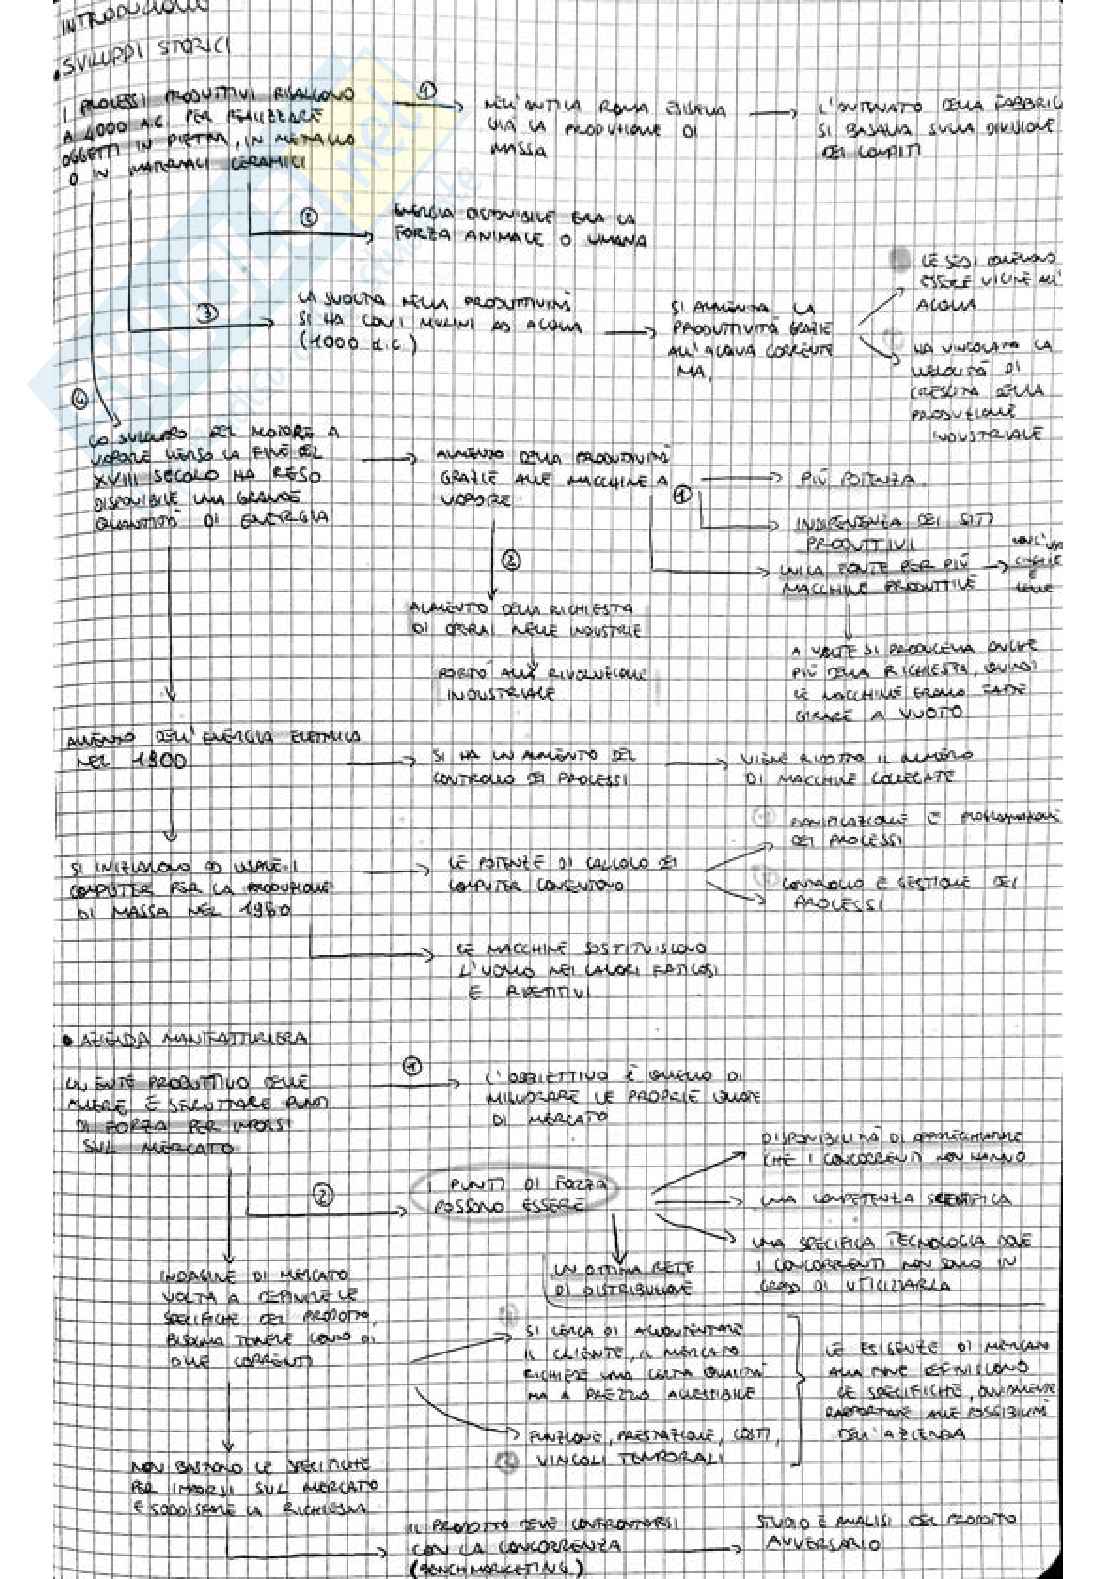 INTRODUZIONE
• SVILUPPI STORICI
I PROCESSI PRODUTTIVI RISALGONO
A 4000 A.C. PER REALIZZARE
OGGETTI IN PIETRA, IN METALLO
O IN MATERIALI CERAMICI
①
NELL'ANTICA ROMA ESISTEVA
GIÀ LA PRODUZIONE DI
MASSA
L'ANTENATO DELLA FABBRICA
SI BASAVA SULLA DIVISIONE
DEI COMPITI
②
ENERGIA DISPONIBILE ERA LA
FORZA ANIMALE O UMANA
③
LA SVOLTA NELLA PRODUTTIVITÀ
SI HA CON I MULINI AD ACQUA
(1000 d.C.)
SI AUMENTA LA
PRODUTTIVITÀ GRAZIE
ALL'ACQUA CORRENTE
MA,
LE SEDI DOVEVANO
ESSERE VICINE ALL'
ACQUA
HA VINCOLATO LA
VELOCITÀ DI
CRESCITA DELLA
PRODUZIONE
INDUSTRIALE
④
LO SVILUPPO DEL MOTORE A
VAPORE VERSO LA FINE DEL
XVIII SECOLO HA RESO
DISPONIBILE UNA GRANDE
QUANTITÀ DI ENERGIA
AUMENTO DELLA PRODUTTIVITÀ
GRAZIE ALLE MACCHINE A
VAPORE
①
PIÙ POTENZA
INDIPENDENZA DEI SITI
PRODUTTIVI
UNICA FONTE PER PIÙ
MACCHINE PRODUTTIVE
CON L'USO
CINGHIE
E
A VOLTE SI PRODUCEVA ANCHE
PIÙ DELLA RICHIESTA, QUINDI
LE MACCHINE ERANO FATTE
GIRARE A VUOTO
②
AUMENTO DELLA RICHIESTA
DI OPERAI NELLE INDUSTRIE
PORTÒ ALLA RIVOLUZIONE
INDUSTRIALE
AVVENTO DELL'ENERGIA ELETTRICA
NEL 1900
SI HA UN AUMENTO DEL
CONTROLLO DEI PROCESSI
VIENE RIDOTTO IL NUMERO
DI MACCHINE COLLEGATE
SI INIZIARONO AD USARE I
COMPUTER PER LA PRODUZIONE
DI MASSA NEL 1980
LE POTENZE DI CALCOLO DEI
COMPUTER CONSENTONO
PIANIFICAZIONE E PROGRAMMAZIONE
DEI PROCESSI
CONTROLLO E GESTIONE DEI
PROCESSI
LE MACCHINE SOSTITUISCONO
L'UOMO NEI LAVORI FATICOSI
E RIPETITIVI
• AZIENDA MANIFATTURIERA
UN ENTE PRODUTTIVO DEVE
AVERE E SFRUTTARE PUNTI
DI FORZA PER IMPORSI
SUL MERCATO
①
L'OBBIETTIVO È QUELLO DI
MIGLIORARE LE PROPRIE QUOTE
DI MERCATO
②
I PUNTI DI FORZA
POSSONO ESSERE
DISPONIBILITÀ DI APPARECCHIATURE
CHE I CONCORRENTI NON HANNO
UNA COMPETENZA SCIENTIFICA
UNA SPECIFICA TECNOLOGIA DOVE
I CONCORRENTI NON SONO IN
GRADO DI UTILIZZARLA
UN OTTIMA RETE
DI DISTRIBUZIONE
INDAGINE DI MERCATO
VOLTA A DEFINIRE LE
SPECIFICHE DEL PRODOTTO,
BISOGNA TENERE CONTO DI
DUE CORRENTI
SI CERCA DI ACCONTENTARE
IL CLIENTE, IL MERCATO
RICHIEDE UNA CERTA QUALITÀ
MA A PREZZO ACCESSIBILE
FUNZIONE, PRESTAZIONE, COSTI,
VINCOLI TEMPORALI
LE ESIGENZE DI MERCATO
ALLA FINE DEFINISCONO
LE SPECIFICHE, OVVIAMENTE
RAPPORTATE ALLE POSSIBILITÀ
DELL'AZIENDA
NON BASTANO LE SPECIFICHE
PER IMPORSI SUL MERCATO
E SODDISFARE LA RICHIESTA
IL PRODOTTO DEVE CONFRONTARSI
CON LA CONCORRENZA
(BENCHMARKETING)
STUDIO E ANALISI DEL PRODOTTO
AVVERSARIO